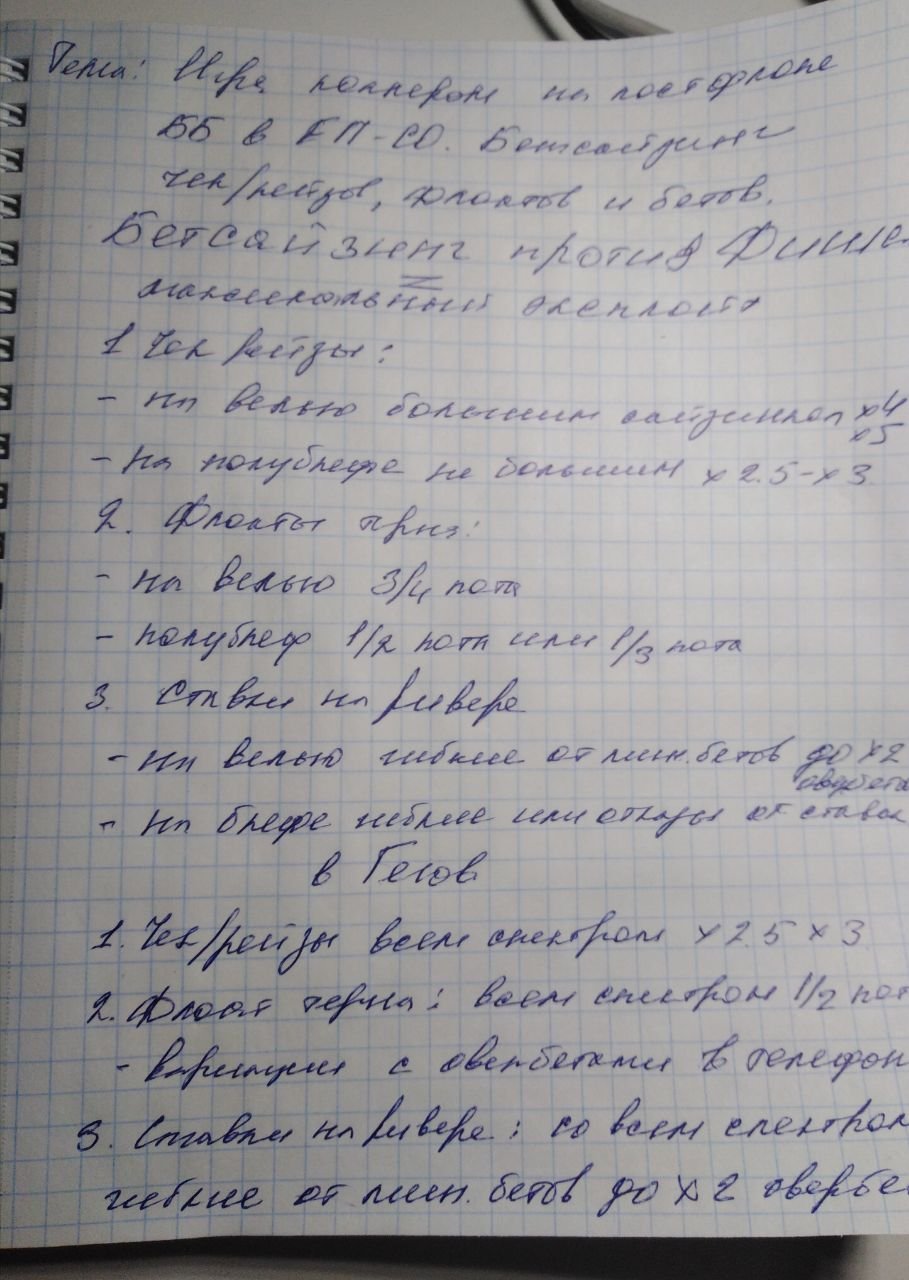 Тема: Игра коллером на постфлопе
ББ в ЕП-СО. Бетсайзинг
чек/рейзов, флоатов и бетов.
Бетсайзинг против Фиша
максимальный эксплойт
1 Чек рейзы:
- на велью большим сайзингом х4
х5
- на полублефе не большим х2.5-х3
2. Флоаты терна:
- на велью 3/4 пота
- полублеф 1/2 пота или 1/3 пота
3. Ставки на ривере
- на велью гибкие от мин.бетов до х2
овербета
- на блефе гибкие или отказы от ставок
в Регов
1. Чек/рейзы всем спектром х2.5 х3
2. Флоат терна: всем спектром 1/2 пот
- вариации с овербетами в телефон
3. Ставки на ривере: со всем спектром
гибкие от мин.бетов до х2 овербе